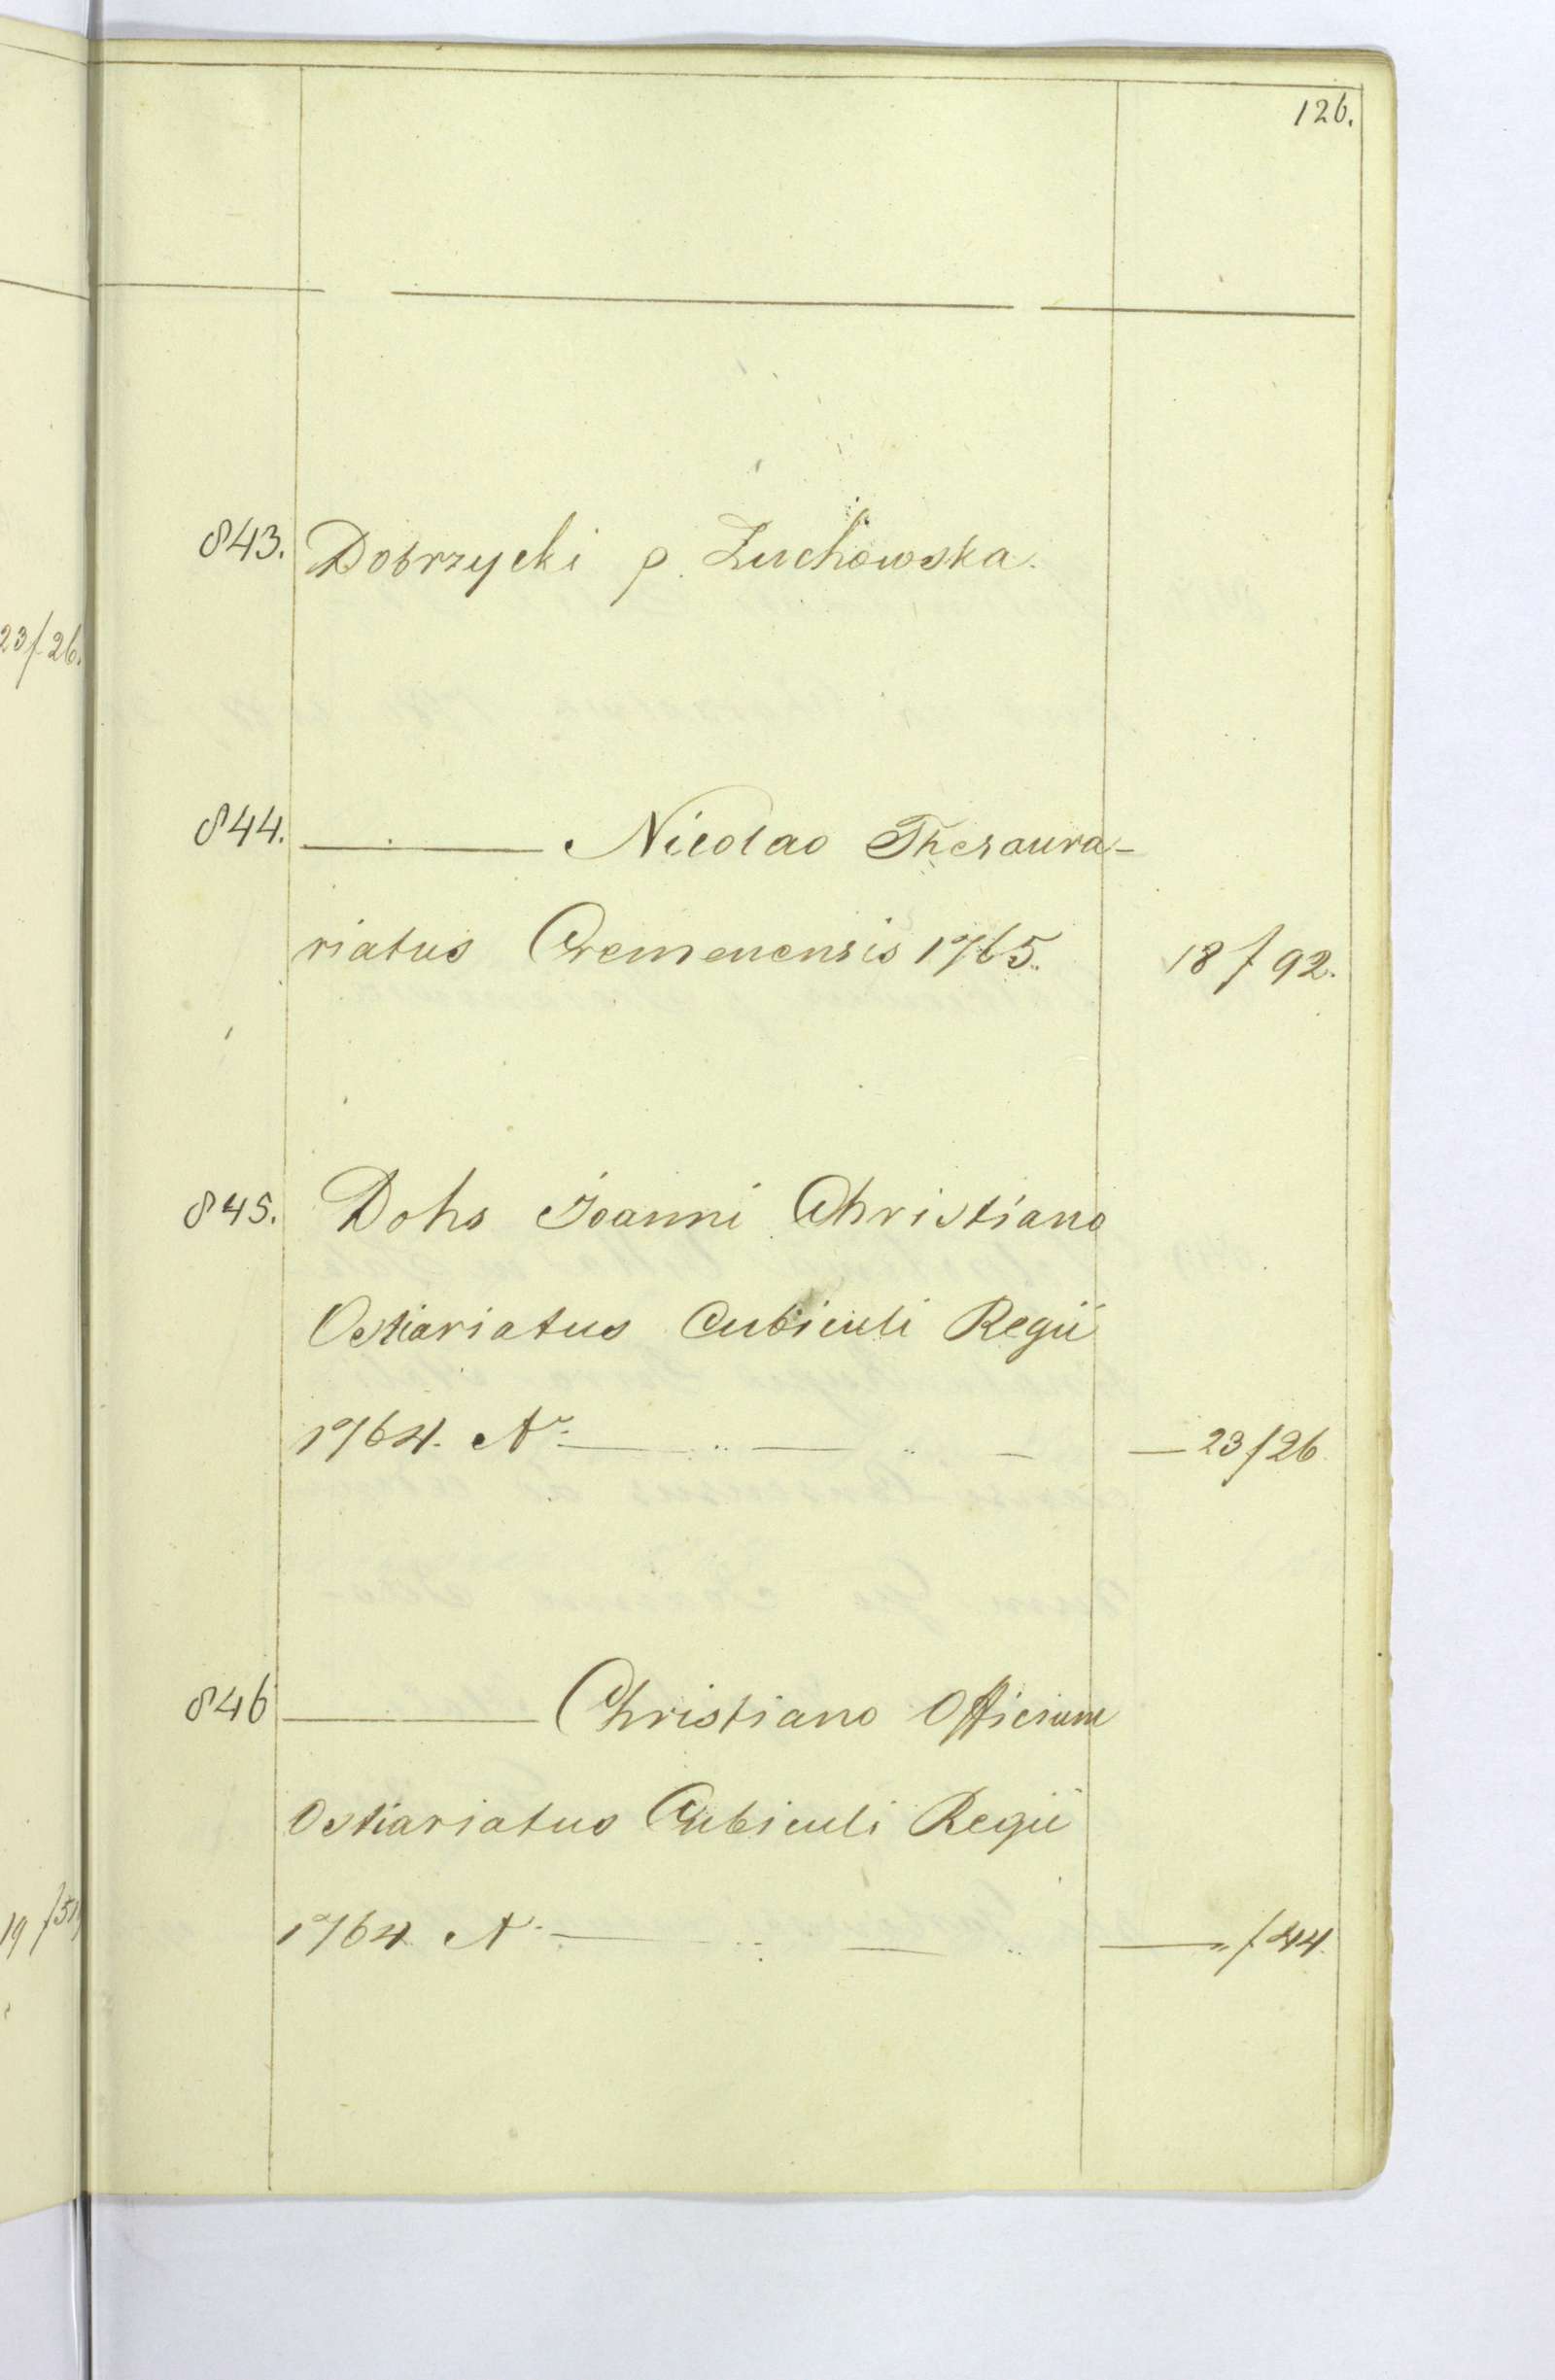 126.
843. Dobrzycki p. Żuchowska.
844. ——— Nicolao Thesaura-
riatus Cremenensis 1765. 18/92.
845. Dohs Joanni Christiano
Ostiariatus Cubiculi Regii
1764. Ao — — — — 23/26
846 ——— Christiano Officium
Ostiariatus Cubiculi Regii
1764 A. — — — „/44.
23/26.
19/51